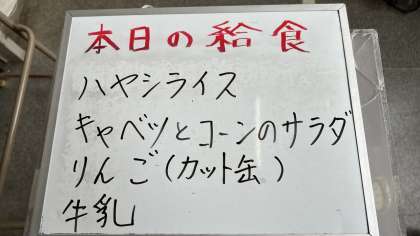 本日の給食
ハヤシライス
キャベツとコーンのサラダ
りんご(カット缶)
牛乳